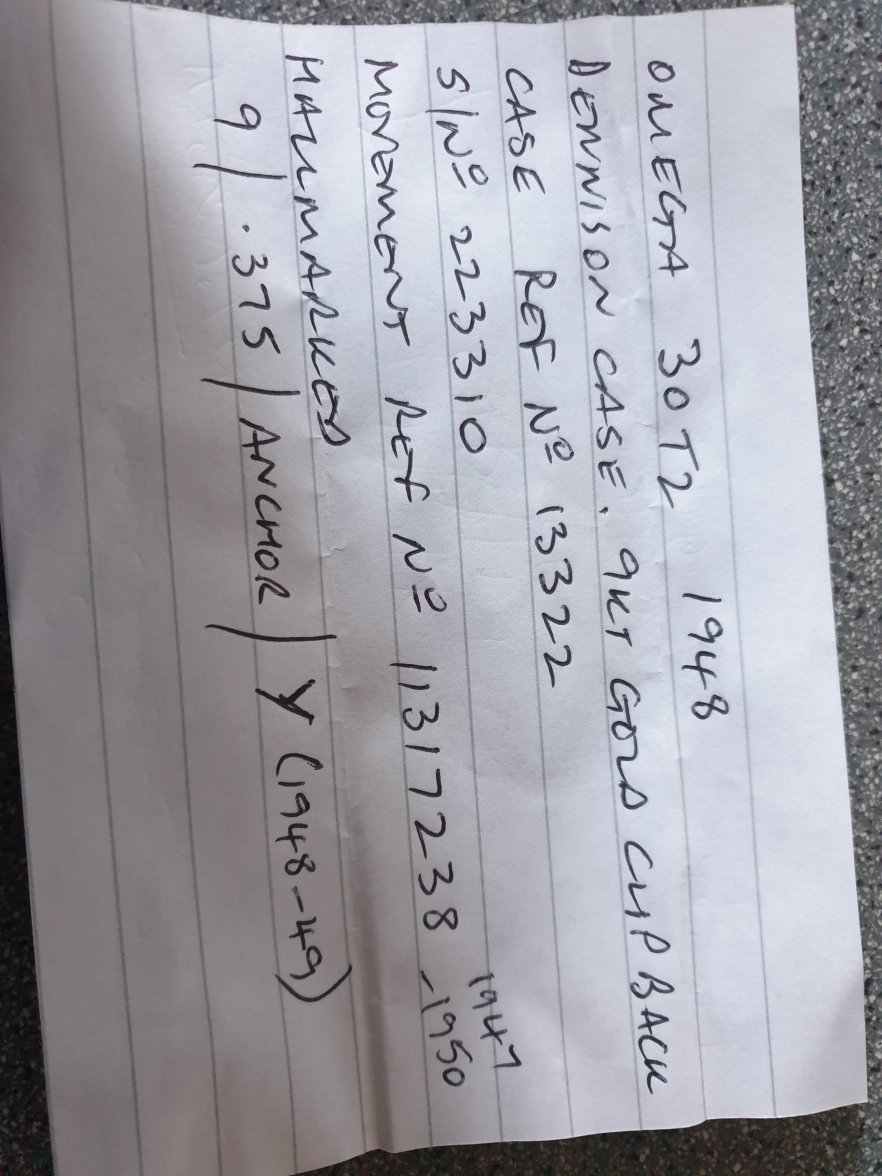 OMEGA 30T2 1948
DENNISON CASE. 9KT GOLD CLIP BACK
CASE REF Nº 13322
S/Nº 223310
MOVEMENT REF Nº 11317238 1947 -1950
HALLMARKED
9 / .375 / ANCHOR / Y (1948-49)